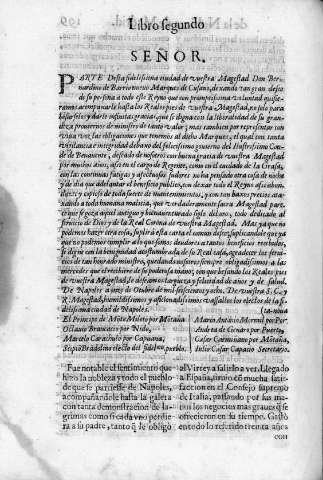 Libro segundo
SEÑOR.
PARTE Desta fidelissima ciudad de vuestra Magestad Don Ber-
nardino de Barrionuevo Marques de Cusano, dexando tan gran deseo
de su persona a todo este Reyno que con promptissima voluntad quisie-
ramos acompañarle hasta los Reales pies de vuestra Magestad, no solo para
besarselos y darle infinitas gracias, que se digna con la liberalidad de su gran-
deza proveernos de ministros de tanto valor; mas tambien por representar con
viva voz las obligaciones que tenemos al dicho Marques, el qual con tanta
vigilancia e integridad debaxo del felicissimo govierno del Illustrissimo Con-
de de Benavente, dessado de nosotros con buena gracia de vuestra Magestad
por muchos años, assiste en el cargo de Regente, como en el cuidado de la Grasa,
con las continuas fatigas y afectuosos sudores no ha pensado otra cosa de noche
y de dia que adelantar el beneficio publico, con dexar todo el Reyno assi abun-
dante y copioso de toda suerte de mantenimientos, y con tan baxos precios atajan-
do a toda humana malicia, que verdaderamente para Magestad pare-
ce que se goza aquel antiguo y bienaventurado siglo del oro, todo dedicado al
servicio de Dios y de la Real Corona de vuestra Magestad. Mas ya que no
podemos hazer otra cosa, suplirá esta carta el comun deseo, suplicandole que ya
que no podemos cumplir a lo que somos deudores a tantos beneficios recebidos,
se digne con la benignidad acostumbrada de su Real casa, agradecer los servi-
cios de tan honrado ministro, quedando nosotros siempre obligadissimos a las
mercedes que el recibiere de su poderosa mano; con que besando los Reales pies
de vuestra Magestad, le desseamos largueza y felicidad de años y de salud.
De Napoles a onze de Otubre de mil seiscientos y ocho. De vuestra S. C. y
R. Magestad, humildissimos y aficionadissimos vassallos los electos de la fi-
delissima ciudad de Napoles.
El Principe de Mele Melesi por Mōtaña
Octavio Brancacio por Nido,
Marcelo Carachulo por Capuana,
Scipiō Brādolino electo del fidelmo pueblo.
Marco Antonio Mormil por Por-
Andrea de Genaro por Puerto,
Cesar Carmiñano por Mōtaña,
Iulio Cesar Capacio Secretario.
Fue notable el sentimiento que
hizo la nobleza y todo el pueblo
de que se partiesse de Napoles,
acompañandole hasta la galera
con tanta demonstracion de la-
grimas como si cada uno perdie-
ra a su padre, tanto q̃ le obligò
el Virrey a salirlo a ver. Llegado
a España, sirviò cō mucha satis-
faccion en el Consejo supremo
de Italia, passando por sus ma-
nos los negocios mas graues q̃ se
ofrecieron en su tiempo. Gastò
en todo lo referido treinta años
con